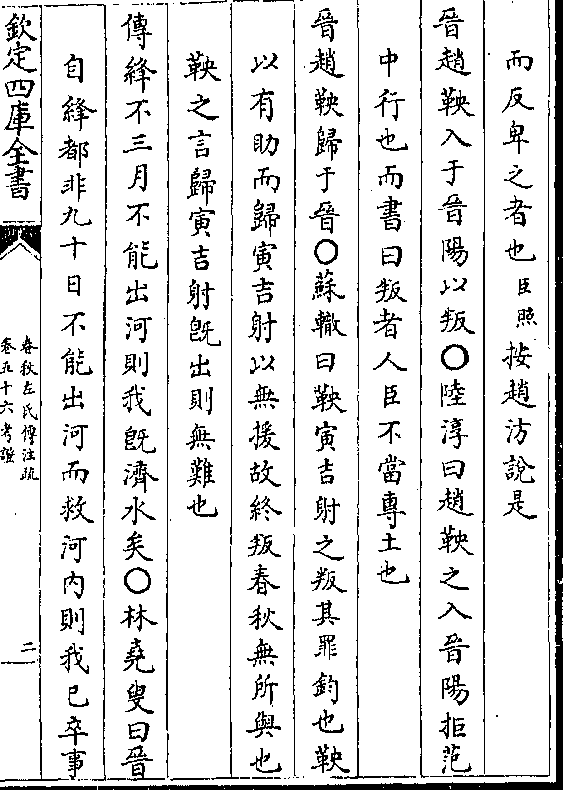 而反卑之者也臣照按趙汸說是
晉趙鞅入于晉陽以叛○陸淳曰趙鞅之入晉陽拒范
中行也而書曰叛者人臣不當專土也
晉趙鞅歸于晉○蘇轍曰鞅寅吉射之叛其罪鈞也鞅
以有助而歸寅吉射以無援故終叛春秋無所與也
鞅之言歸寅吉射旣出則無難也
傳絳不三月不能出河則我旣濟水矣○林堯叟曰晉
自絳都非九十日不能出河而救河內則我已卒事
欽定四庫全書
春秋左氏傳注疏
卷五十六考證
二